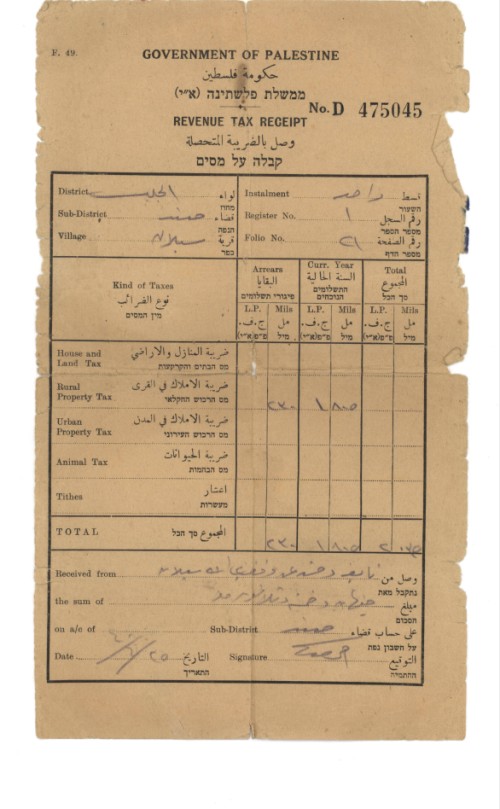 F. 49.
GOVERNMENT OF PALESTINE
حكومة فلسطين
ממשלת פלשתינה (א״י)
No. D 475045
REVENUE TAX RECEIPT
وصل بالضريبة المتحصلة
קבלה על מסים
District الجليل لواء מחוז Instalment واحد قسط השעור
Sub-District صفد قضاء הנפה Register No. ١ رقم السجل מספר הספר
Village سبلان قرية כפר Folio No. ٢١ رقم الصفحة מספר הדף
Kind of Taxes
نوع الضرائب
מין המסים
Arrears
البقايا
פיגורי תשלומים
Curr. Year
السنة الحالية
התשלומים הנוכחים
Total
المجموع
סך הכל
L.P. Mils L.P. Mils L.P. Mils
ج.ف. مل ج.ف. مل ج.ف. مل
פ״פ(א״י) מיל פ״פ(א״י) מיל פ״פ(א״י) מיל
House and Land Tax ضريبة المنازل والاراضي
מס הבתים והקרקעות
Rural Property Tax ضريبة الاملاك في القرى
מס הרכוש החקלאי
٢٣٠ ١ ٨٠٥
Urban Property Tax ضريبة الاملاك في المدن
מס הרכוש העירוני
Animal Tax ضريبة الحيوانات
מס הבהמות
Tithes اعشار
מעשרות
TOTAL المجموع סך הכל ٢٣٠ ١ ٨٠٥ ٢ ٠٣٥
Received from نايف سبلان وصل من
נתקבל מאת
the sum of مبلغ
הסכום
on a/c of Sub-District صفد على حساب قضاء
על חשבון נפת
Date التاريخ Signature التوقيع
התאריך החתימה